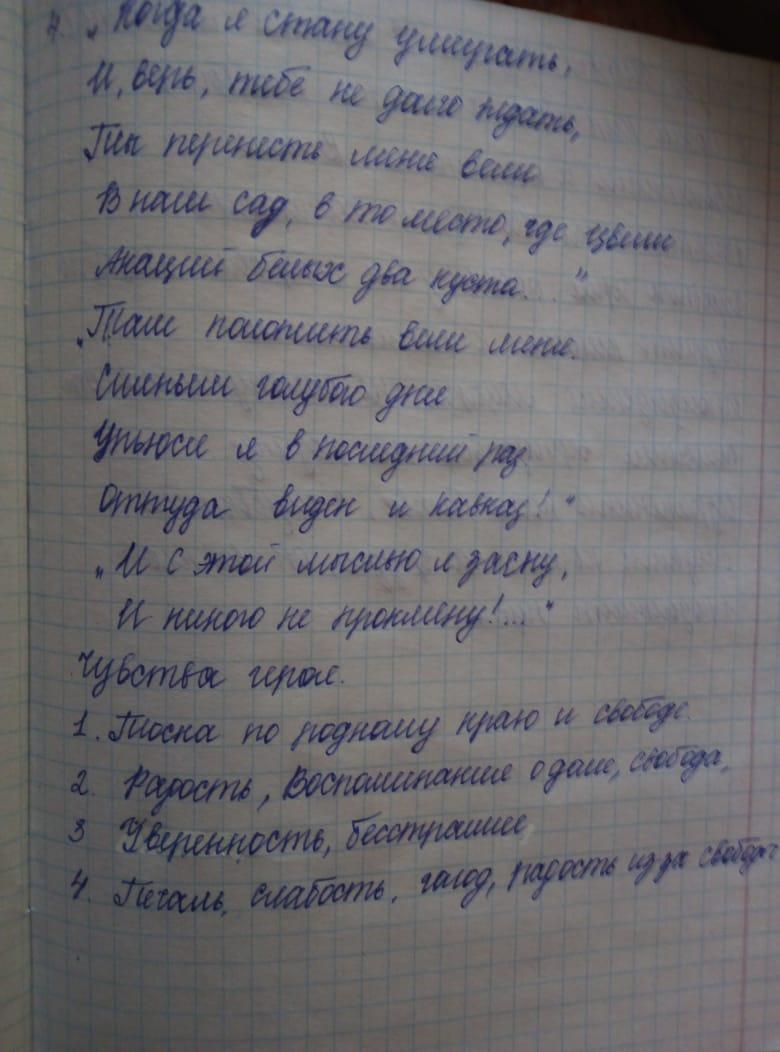 7. „Когда я стану умирать,
И, верь, тебе не долго ждать,
Ты перенесть меня вели
В наш сад, в то место, где цвели
Акаций белых два куста. “
„Там положить вели меня.
Сияньем голубого дня
Упьюся я в последний раз
Оттуда виден и Кавказ! “
„И с этой мыслью я засну,
И никого не прокляну!... “
Чувства героя.
1. Тоска по родному краю и свободе.
2. Радость, Воспоминание о доме, свобода,
3 Уверенность, бесстрашие
4. Печаль, слабость, голод, радость из за свободы